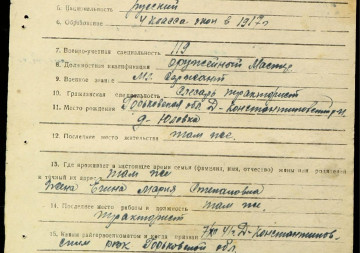 5. Национальность русский
6. Образование 4 класса окон в 1917 г.
7. Военноучетная специальность 112
8. Должностная квалификация оружейный мастер
9. Военное звание мл. Сержант
10. Гражданская специальность Слесарь тракторист
11. Место рождения Горьковская обл. Д-Константиновский р-н
д. Юловка
12. Последнее место жительства там же
13. Где проживает в настоящее время семья (фамилия, имя, отчество) жены или
и точный их адрес там же
жена Мария Степановна
14. Последнее место работы и должность там же.
тракторист
15. Каким райгорвоенкоматом и когда призван Д-Константинов-
ским рвк Горьковской обл.